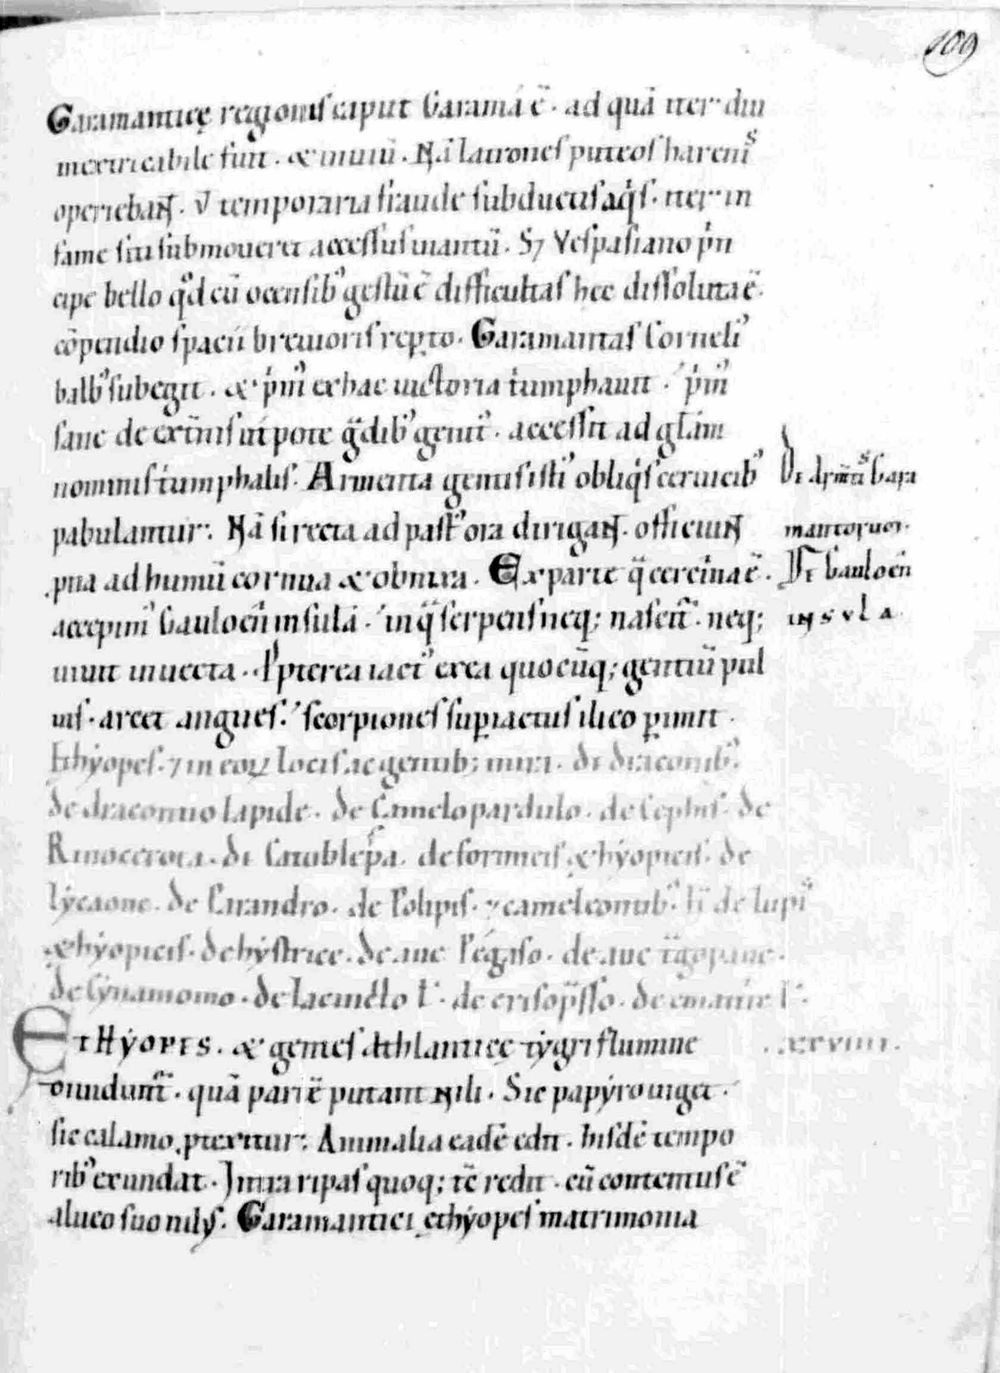 109
Garamanticę regionis caput Garama ē . ad quā iter diu
inextricabile fuit . & inuiū . Nā latrones puteos harenis
operiebant . ut temporaria fraude subductis aqis . iter in
fame siti submoueret accessus uiantū . S; Vespasiano prin
cipe bello qd cū ocensib' gestū ē difficultas hec dissoluta ē .
cōpendio spacii breuioris repto . Garamantas Corneli'
balb' subegit . & prim' ex hac uictoria triumphauit . prim'
sane de extnis ut pote gadib' genit' . accessit ad glām
nominis triumphalis . Armenta gentis isti' obliqis ceruicib'
pabulantur . Nā si recta ad past' ora dirigant . officiunt
pna ad humū cornua & obnixa . Ex parte q cercina ē .
accepim' Gauloen insulā . in q serpens neq; nascit . neq;
uiuit inuecta . Propterea iact' ex ea quocūq; gentiū pul
uis . arcet angues . scorpiones supiactus ilico pimit .
Ethyopes . 7 in eoꝝ locis ac gentib; mira . de draconib' .
de draconito lapide . de Camelopardulo . de Cephis . de
Rinocerota . de Catoblepa . de formicis æthyopicis . de
lycaone . de Parandro . de Polipis . 7 cameleontib' . de lupis
æthyopicis . de hystrice . de aue Pegaso . de aue tragopane .
de Cynamomo . de Iacincto l' . de crisopsso . de ematite l' .
De armtis Gara
mantorum .
De Gauloen
insula .
Ethyopes . & gentes Athlanticę tygri flumine
. xxviiii .
diuidunt . quā partē putant Nili . Sic papyro uiget .
sic calamo ptexitur . Animalia eadē edit . hisdē tempo
rib' exundat . Intra ripas quoq; tc̄ redit . cū contentus ē
alueo suo nilus . Garamantici ęthyopes matrimonia